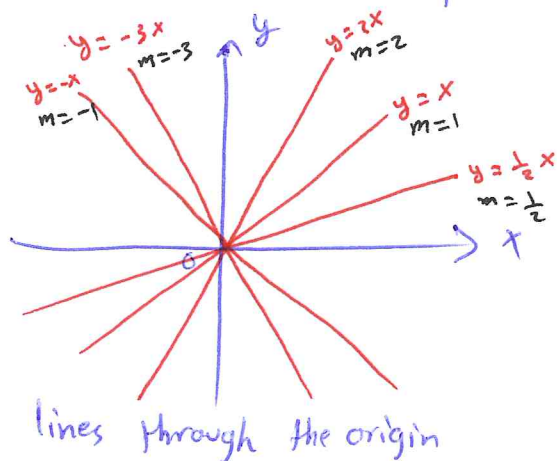 y = -3x
m = -3
y
y = 2x
m = 2
y = -x
m = -1
y = x
m = 1
y = 1/2 x
m = 1/2
0
x
lines through the origin